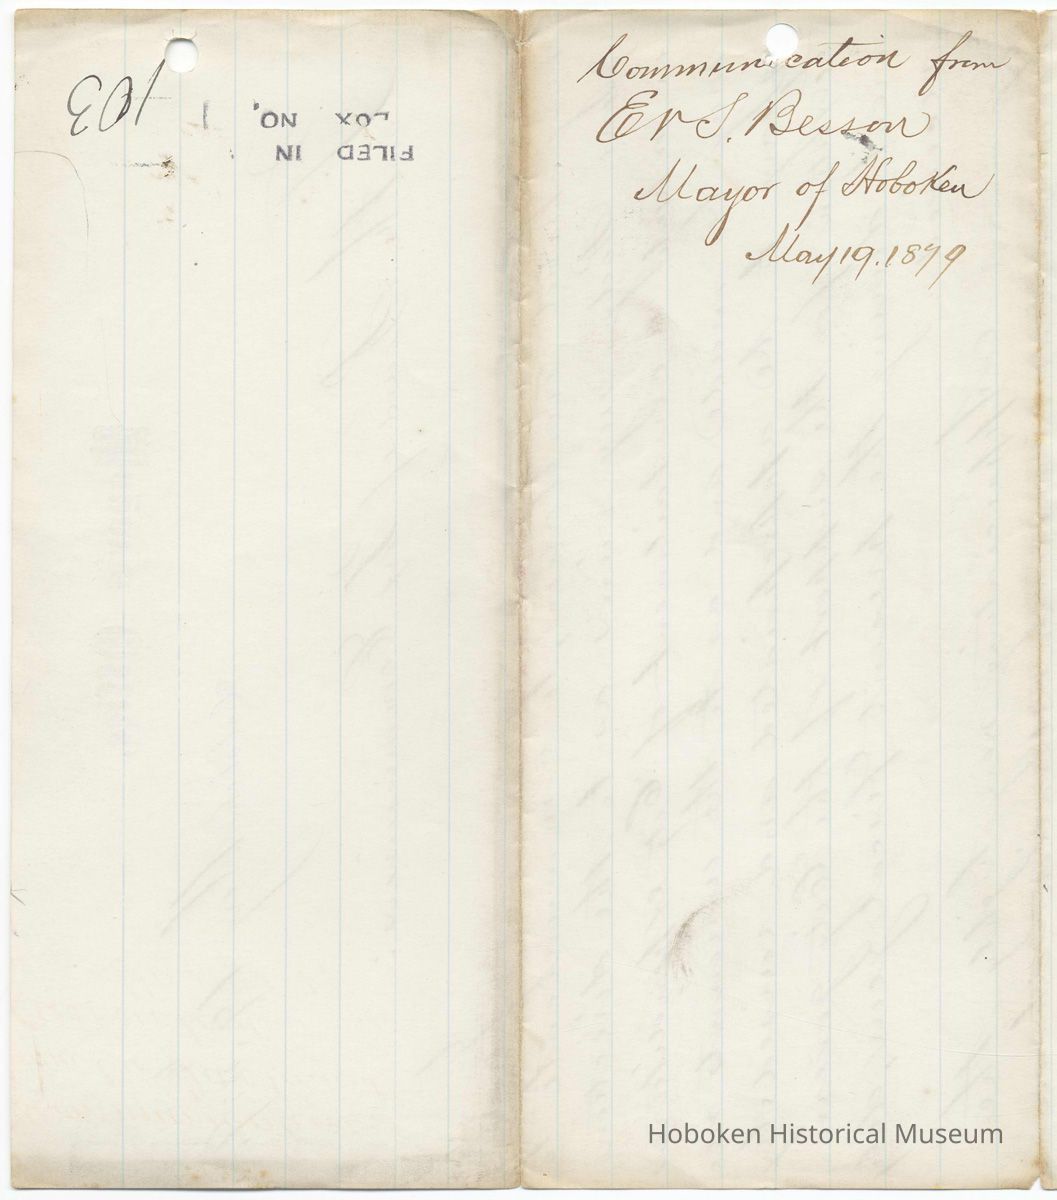 Communication from
E V S. Besson
Mayor of Hoboken
May 19. 1879
FILED IN
BOX NO. 1
103
Hoboken Historical Museum